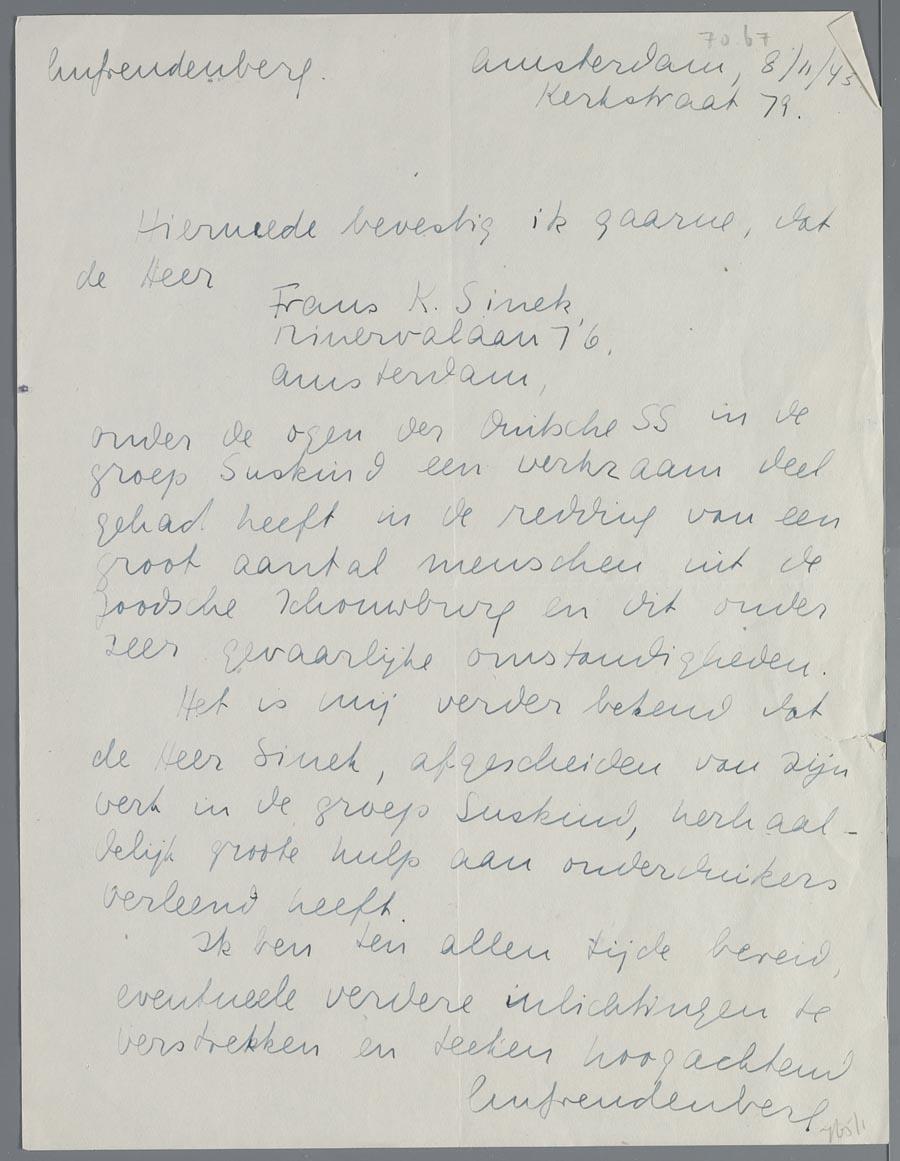 70.67
Lmfreudenberg.
Amsterdam, 8/11/45
Kerkstraat 79.
Hiermede bevestig ik gaarne, dat
de Heer
Frans K. Sinek,
Minervalaan 76,
Amsterdam,
onder de ogen der Duitsche SS in de
groep Suskind een werkzaam deel
gehad heeft in de redding van een
groot aantal menschen uit de
Joodsche Schouwburg en dit onder
zeer gevaarlijke omstandigheden.
Het is mij verder bekend dat
de Heer Sinek, afgescheiden van zijn
werk in de groep Suskind, herhaal-
delijk groote hulp aan onderduikers
verleend heeft.
Ik ben ten allen tijde bereid,
eventueele verdere inlichtingen te
verstrekken en teeken hoogachtend
Lmfreudenberg